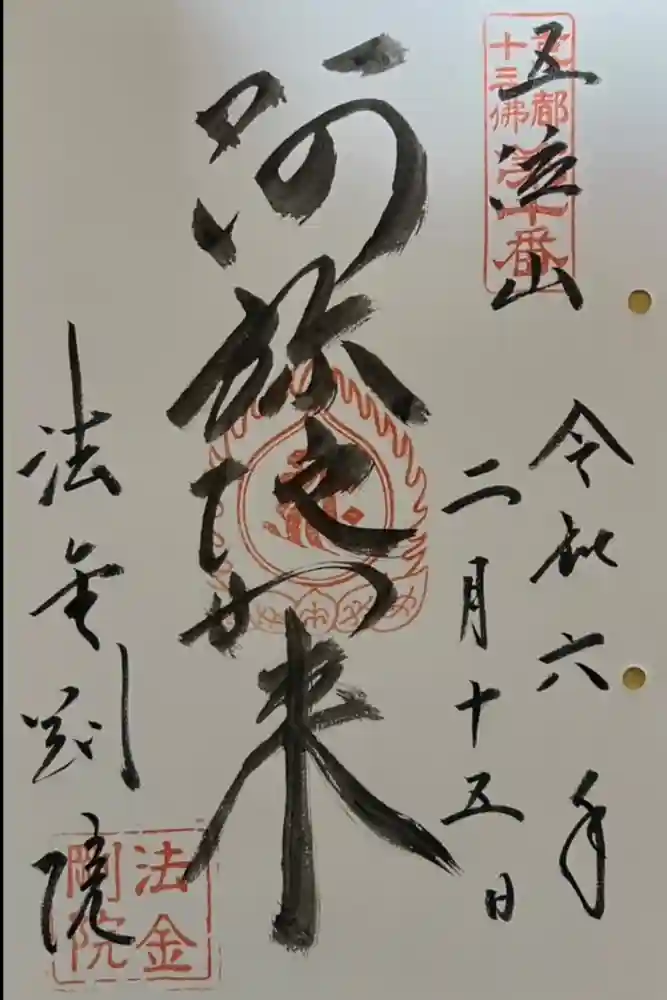 京都
十三佛
第十番
五位山
令和六年
二月十五日
阿弥陀如来
法金剛院
法金
剛院